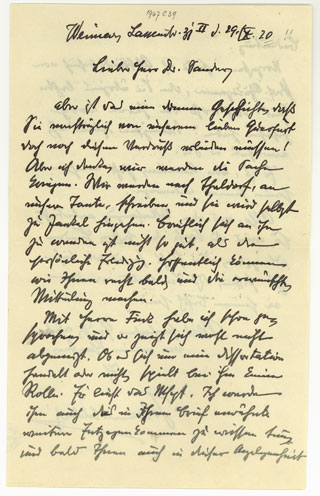 1967 C 39
Weimar, Lassenstr. 31 II d. 29. X. 20
Lieber Herr Dr. Sander,
aber ist das eine dumme Geschichte, daß
Sie nachträglich von unserem lieben
doch noch diesen Verdruß erleiden müssen!
Aber ich denke, wir werden die Sache
kriegen. Wir werden nach an
unsere Tante, schreiben und sie wird selbst
zu hingehen. Brieflich sich an ihn
zu wenden ist nicht so gut, als die
persönliche Hoffentlich können
wir Ihnen recht bald und die erwünschte
Mitteilung machen.
Mit Herrn habe ich schon ge-
sprochen und er zeigt sich noch nicht
abgeneigt. Ob es sich um eine Dissertation
handelt oder nicht, spielt bei ihm keine
Rolle. Er liest das Mskpt. Ich werde
ihm auch das in Ihrem Brief erwähnte
weitere Entgegenkommen zu wissen tun
und bald Ihnen auch in dieser Angelegenheit